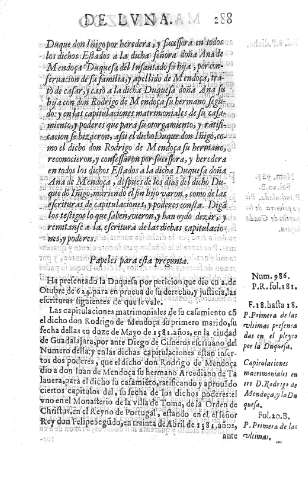 DE LVNA. 268
Duque don Iñigo por heredera, y sucessora en todos
los dichos Estados a la dicha señora doña Ana de
Mendoça Duquesa del Infantado su hija, por con-
seruacion de su familia, y apellido de Mendoça, tra-
tò de casar, y casò a la dicha Duquesa doña Ana su
hija con don Rodrigo de Mendoça su hermano segun-
do: y en las capitulaciones matrimoniales de su casa-
miento, y poderes que para su otorgamiento, y ratifi-
cacion se hizieron, assi el dicho Duque don Iñigo, co-
mo el dicho don Rodrigo de Mendoça su hermano,
reconocieron, y confessaron por sucessora, y heredera
en todos los dichos Estados a la dicha Duquesa doña
Ana de Mendoça, despues de los dias del dicho Du-
que don Iñigo, muriendo sin hijo varon, como de las
escrituras de capitulaciones, y poderes consta. Digã
los testigos lo que saben, vieron, y han oydo dezir, y
remitanse a la escritura de las dichas capitulacio-
nes, y poderes.
Papeles para esta pregunta.
Ha presentado la Duquesa por peticion que dio en 2. de
Octubre de 624. para en prueua de su derecho, y justicia, las
escrituras siguientes de que se vale.
Las capitulaciones matrimoniales de su casamiento cõ
el dicho don Rodrigo de Mendoça su primero marido, su
fecha dellas en 22. de Mayo de 1581. años, en la ciudad
de Guadalajara, por ante Diego de Cisneros escriuano del
Numero della: y en las dichas capitulaciones estan inser-
tos dos poderes, que el dicho don Rodrigo de Mendoça
dio a don Iuan de Mendoça su hermano Arcediano de Ta
lauera, para el dicho su casamiẽto, ratificando, y aprouãdo
ciertos capitulos del, su fecha de los dichos poderes: el
vno en el Monasterio de la villa de Tomar, de la Orden de
Christus, en el Reyno de Portugal, estando en el el señor
Rey don Felipe Segũdo, en treinta de Abril de 1581. años,
ante
Num. 986.
P. R. fol. 181.
F. 18. hasta 28.
P. Primera de las
vltimas presenta
das en el pleyto
por la Duquesa.
Capitulaciones
matrimoniales en
tre D. Rodrigo de
Mendoça, y la Du
quesa.
Fol. 20. B.
P. Primera de las
vltimas.